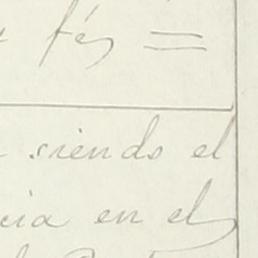 fés =
siendo el
cia en el